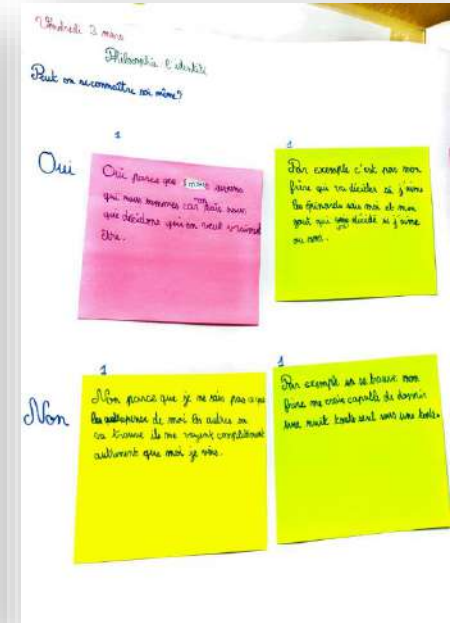 Vendredi 3 mars
Philosophie l'identité
Peut on se connaître soi même?
1
Oui
Oui parce que nous savons
qui nous sommes car mais nous
que décidons qui on veut vraiment
être.
1
Par exemple c'est pas mon
frère qui va décider si j'aime
les épinards sais moi et mon
gout qui décide si j'aime
ou non.
1
Non
Non parce que je ne sais pas ce que
les autres pense de moi les autres on
sa trouve ils me voyent complètement
autrement que moi je vois.
1
Par exemple sa se trouve mon
frère me crois capable de dormir
une nuit toute seul sous une tente.